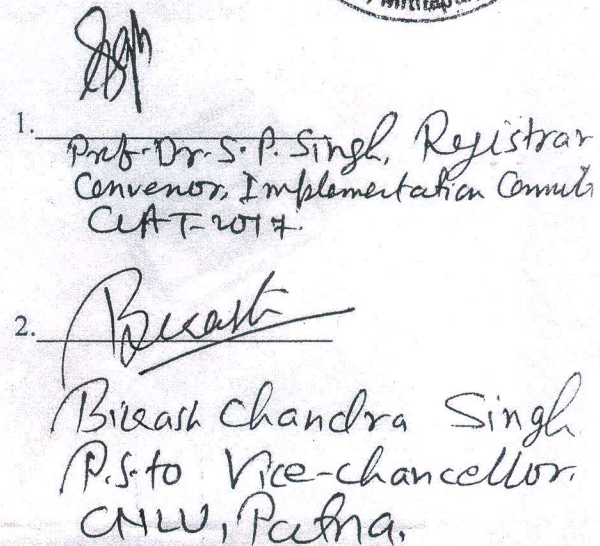 Mithapur
1.
Prof. Dr. S. P. Singh, Registrar
Convenor, Implementation
CLAT-2017
2. Bikash
Bikash Chandra Singh
P.S. to Vice-chancellor.
CNLU, Patna.